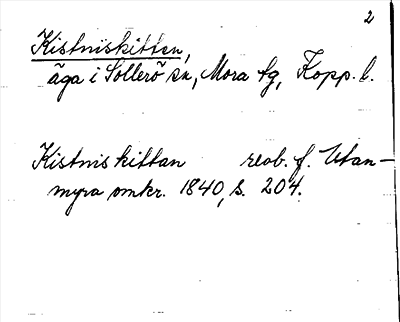 2
Kistniskitten,
äga i Sollerö sn, Mora tg, Kopp. l.
Kistniskittan reob. f. Utan-
myra omkr. 1840, s. 204.